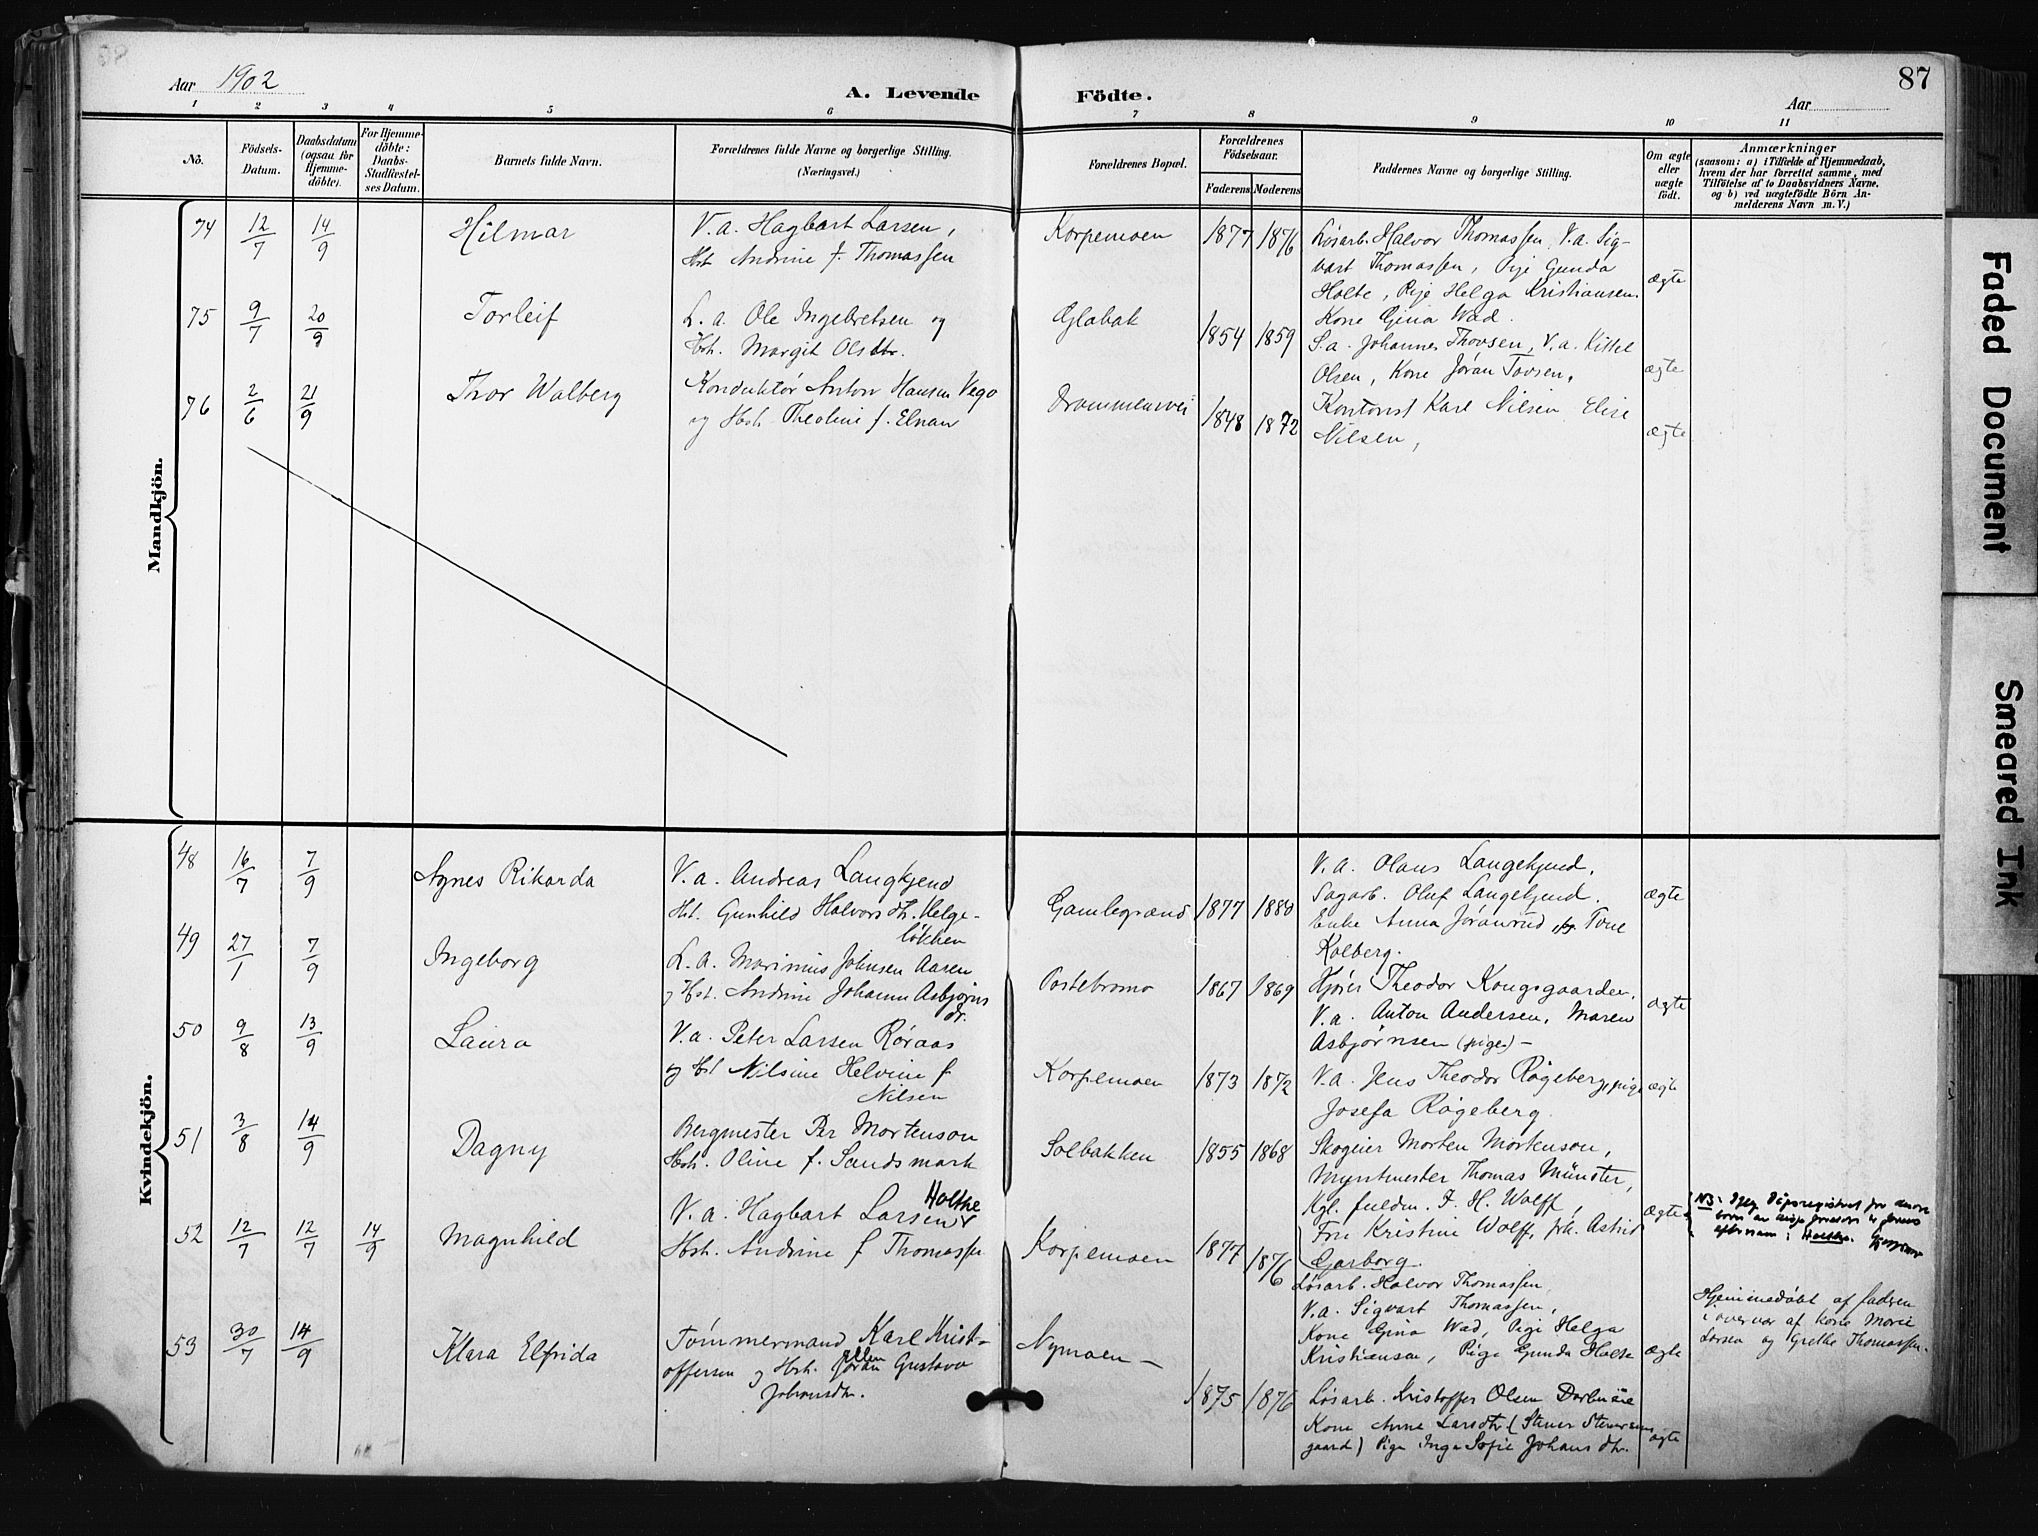 Aar 1902
A. Levende Födte.
Aar
87
1 2 3 4 5 6 7 8 9 10 11
Nö.
Födsels-Datum.
Daabsdatum (ogsaa for Hjemmedöbte).
For Hjemmedöbte: Daabs-Stadfæstelses Datum.
Barnets fulde Navn.
Forældrenes fulde Navne og borgerlige Stilling.
(Næringsvei.)
Forældrenes Bopæl.
Forældrenes Födselsaar.
Faderens Moderens
Faddernes Navne og borgerlige Stilling.
Om ægte eller uægte födt.
Anmærkninger
(saasom: a) i Tilfælde af Hjemmedaab,
hvem der har forrettet samme, med
Tilföielse af to Daabsvidners Navne,
og b) ved uægtefödte Börn An-
melderens Navn m. V.)
Mandkjön.
74 12/7 14/9 Hilmar
V. a. Hagbart Larsen,
Hst. Andrine f. Thomassen
Korpemoen 1877 1876
Løsarb. Halvor Thomassen, V. a. Sig-
vart Thomassen, Pige Gunda
Holte, Pige Helga Kristiansen.
Kone Gina Wad.
ægte
75 9/7 20/9 Torleif
L. a. Ole Ingebretsen og
Hst. Margit Olsdtr.
Glabak 1854 1859
S. a. Johannes Thovsen, V. a. Kittel
Olsen, Kone Jøran Tovsen.
ægte
76 2/6 21/9 Thor Walberg
Konduktør Anton Hansen Vego
og Hst. Theoline f. Elnan
Drammensvei 1848 1872
Kontorist Karl Nilsen Elise
Nilsen,
ægte
Kvindekjön.
48 16/7 7/9 Agnes Rikarda
V. a. Andreas Langkjend
Hst. Gunhild Halvorsdtr. Helge-
løkken
Gamlegrænd 1877 1880
V. a. Olaus Langekjend,
Sagarb. Oluf Langekjend.
Enke Anna Jøranrud, Tone
Kolberg.
ægte
49 27/1 7/9 Ingeborg
L. a. Marinius Johnsen Aasen
og Hst. Andrine Johanne Asbjørns
dr.
Portebromo 1867 1869
Theodor Kongsgaarden,
V. a. Anton Andersen, Maren
Asbjørnsen (pige) —
ægte
50 9/8 13/9 Laura
V. a. Peter Larsen Røraas
og Hst Nilsine Helvine f
Nilsen
Korpemoen 1873 1872
V. a. Jens Theodor Røgeberg, pige
Josefa Røgeberg.
ægte
51 3/8 14/9 Dagny
Bergmester Per Mortenson
Hst. Oline f. Sandsmark
Solbakken 1855 1868
Skogeier Morten Mortenson,
Myntmester Thomas Münster,
Kgl. fuldm. F. H. Wolff,
Fru Kristine Wolff, frk. Astrid
Garborg.
ægte
52 12/7 12/7 14/9 Magnhild
V. a. Hagbart Larsen Holthe
Hst. Andrine f Thomassen
Korpemoen 1877 1876
Løsarb. Halvor Thomassen,
V. a. Sigvart Thomassen,
Kone Gina Wad, Pige Helga
Kristiansen, Pige Gunda Holte
ægte
Hjemmedøbt af faderen
i overvær af Kone Marie
Larsen og Grethe Thomassen.
53 30/7 14/9 Klara Elfrida
Tømmermand Karl Krist-
offersen og Hst. Jøran Gustava
Johansdtr.
Nymoen — 1875 1876
Løsarb. Kristoffer Olsen
Kone Anne Larsdtr (
gaard) Pige Inga Sofie Johansdtr.
ægte
Faded Document
Smeared Ink